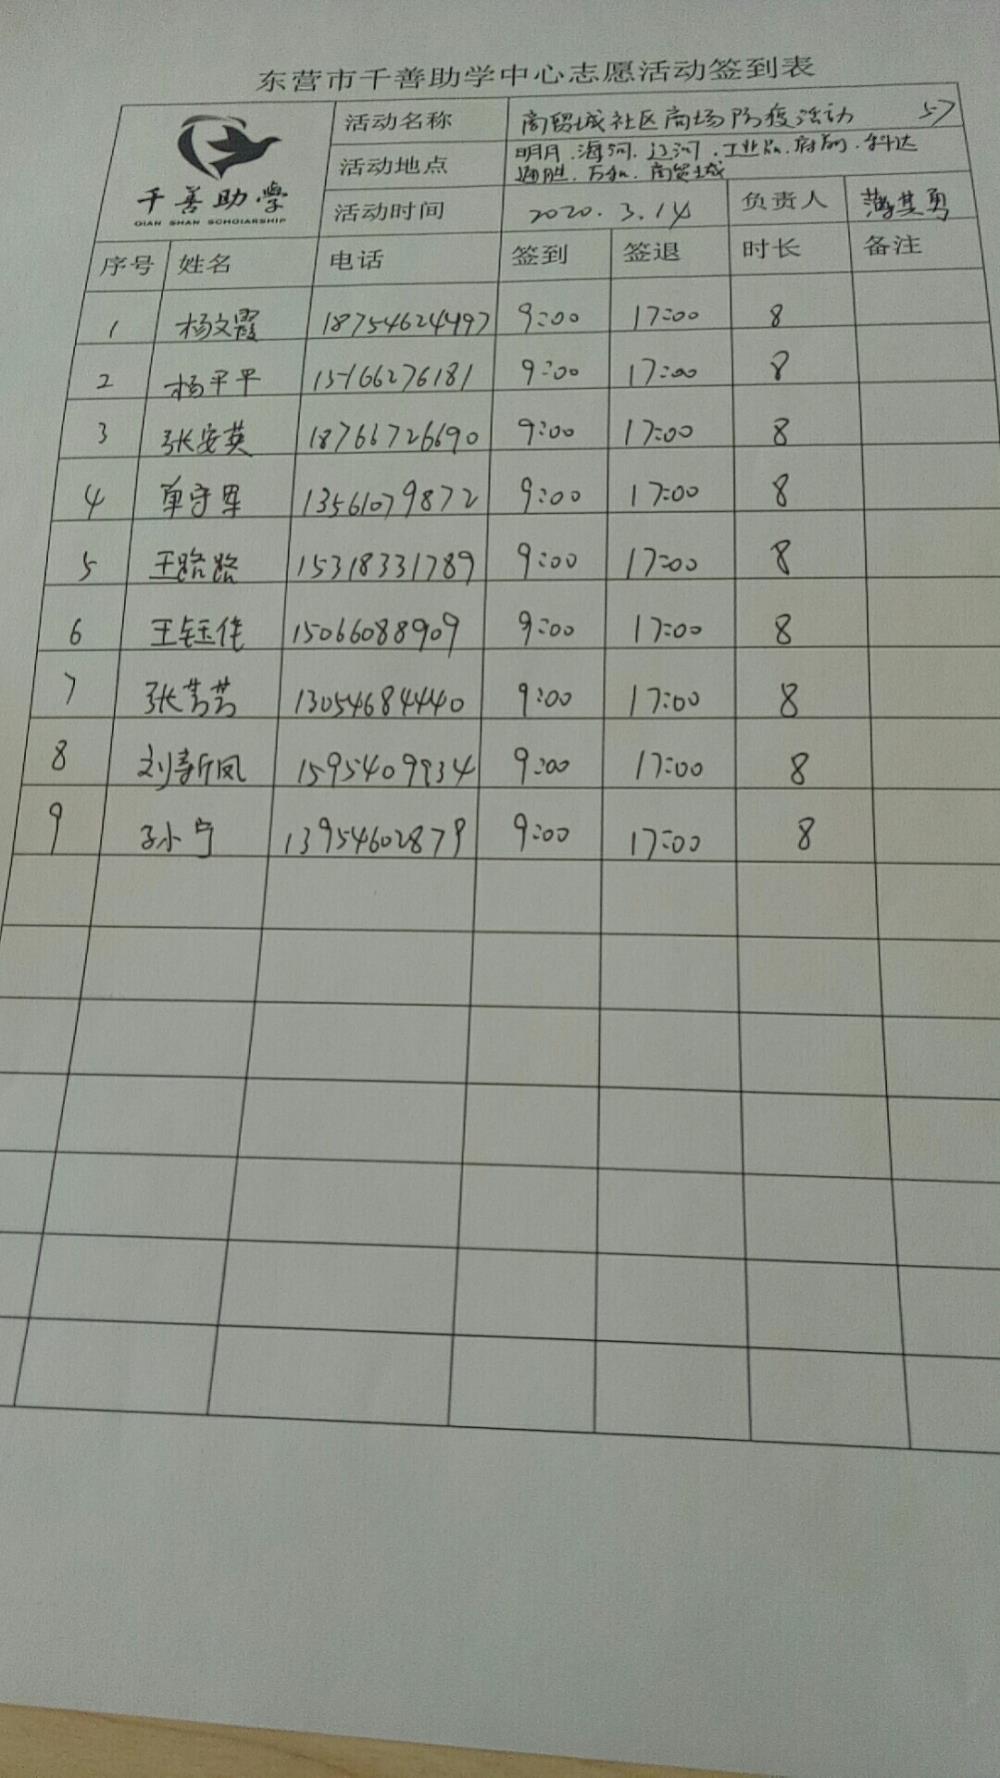 东营市千善助学中心志愿活动签到表
千善助学
QIAN SHAN SCHOLARSHIP
活动名称 商贸城社区商场防疫活动 57
活动地点 明月.海河.辽河.工业品.府前.科达
通胜.万和.商贸城
活动时间 2020.3.14 负责人 薄其勇
序号 姓名 电话 签到 签退 时长 备注
1 杨文霞 18754624497 9:00 17:00 8
2 杨平平 15166276181 9:00 17:00 8
3 张安英 18766726690 9:00 17:00 8
4 单守军 13561079872 9:00 17:00 8
5 王路路 15318331789 9:00 17:00 8
6 王钰佳 15066088909 9:00 17:00 8
7 张芳芳 13054684440 9:00 17:00 8
8 刘新凤 1595409934 9:00 17:00 8
9 孙小宁 13954602879 9:00 17:00 8